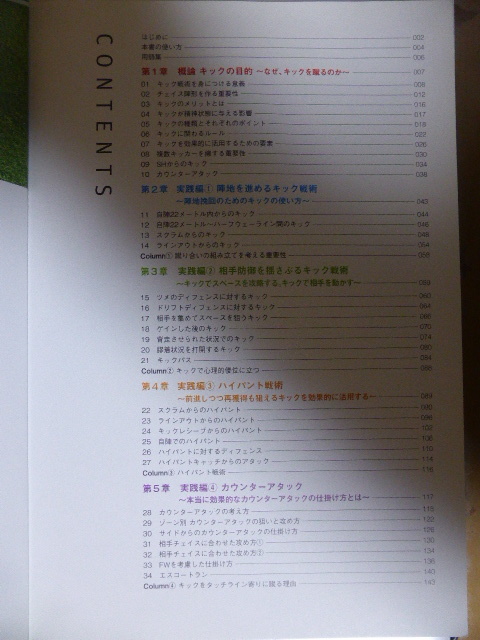 CONTENTS
はじめに 002
本書の使い方 004
用語集 006
第1章 概論 キックの目的 〜なぜ、キックを蹴るのか〜 007
01 キック戦術を身につける意義 008
02 チェイス隊形を作る重要性 012
03 キックのメリットとは 016
04 キックが精神状態に与える影響 017
05 キックの種類とそれぞれのポイント 018
06 キックに関わるルール 022
07 キックを効果的に活用するための要素 026
08 複数キッカーを擁する重要性 030
09 SHからのキック 034
10 カウンターアタック 038
第2章 実践編① 陣地を進めるキック戦術
〜陣地挽回のためのキックの使い方〜 043
11 自陣22メートル内からのキック 044
12 自陣22メートル〜ハーフウェーライン間のキック 046
13 スクラムからのキック 048
14 ラインアウトからのキック 054
Column① 蹴り合いの組み立てを考える重要性 058
第3章 実践編② 相手防御を揺さぶるキック戦術
〜キックでスペースを攻略する、キックで相手を動かす〜 059
15 ツメのディフェンスに対するキック 060
16 ドリフトディフェンスに対するキック 064
17 相手を集めてスペースを狙うキック 066
18 ゲインした後のキック 070
19 背走させられた状況でのキック 074
20 膠着状況を打開するキック 080
21 キックパス 084
Column② キックで心理的優位に立つ 088
第4章 実践編③ ハイパント戦術
〜前進しつつ再獲得も狙えるキックを効果的に活用する〜 089
22 スクラムからのハイパント 090
23 ラインアウトからのハイパント 096
24 キックレシーブからのハイパント 102
25 自陣でのハイパント 106
26 ハイパントに対するディフェンス 110
27 ハイパントキャッチからのアタック 114
Column③ ハイパント戦術 116
第5章 実践編④ カウンターアタック
〜本当に効果的なカウンターアタックの仕掛け方とは〜 117
28 カウンターアタックの考え方 118
29 ゾーン別 カウンターアタックの狙いと攻め方 122
30 サイドからのカウンターアタックの仕掛け方 126
31 相手チェイスに合わせた攻め方① 130
32 相手チェイスに合わせた攻め方② 134
33 FWを考慮した仕掛け方 136
34 エスコートラン 140
Column④ キックをタッチライン寄りに蹴る理由 143